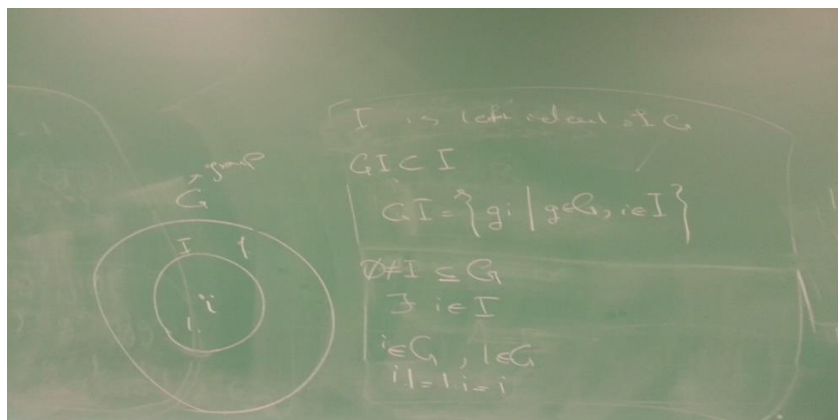 group
G
I 1
i
1
I is left ideal of G
GI ⊂ I
GI = { gi | g∈G, i∈I }
∅≠I ⊆ G
∃ i ∈ I
i∈G, 1∈G
i1=1i=i